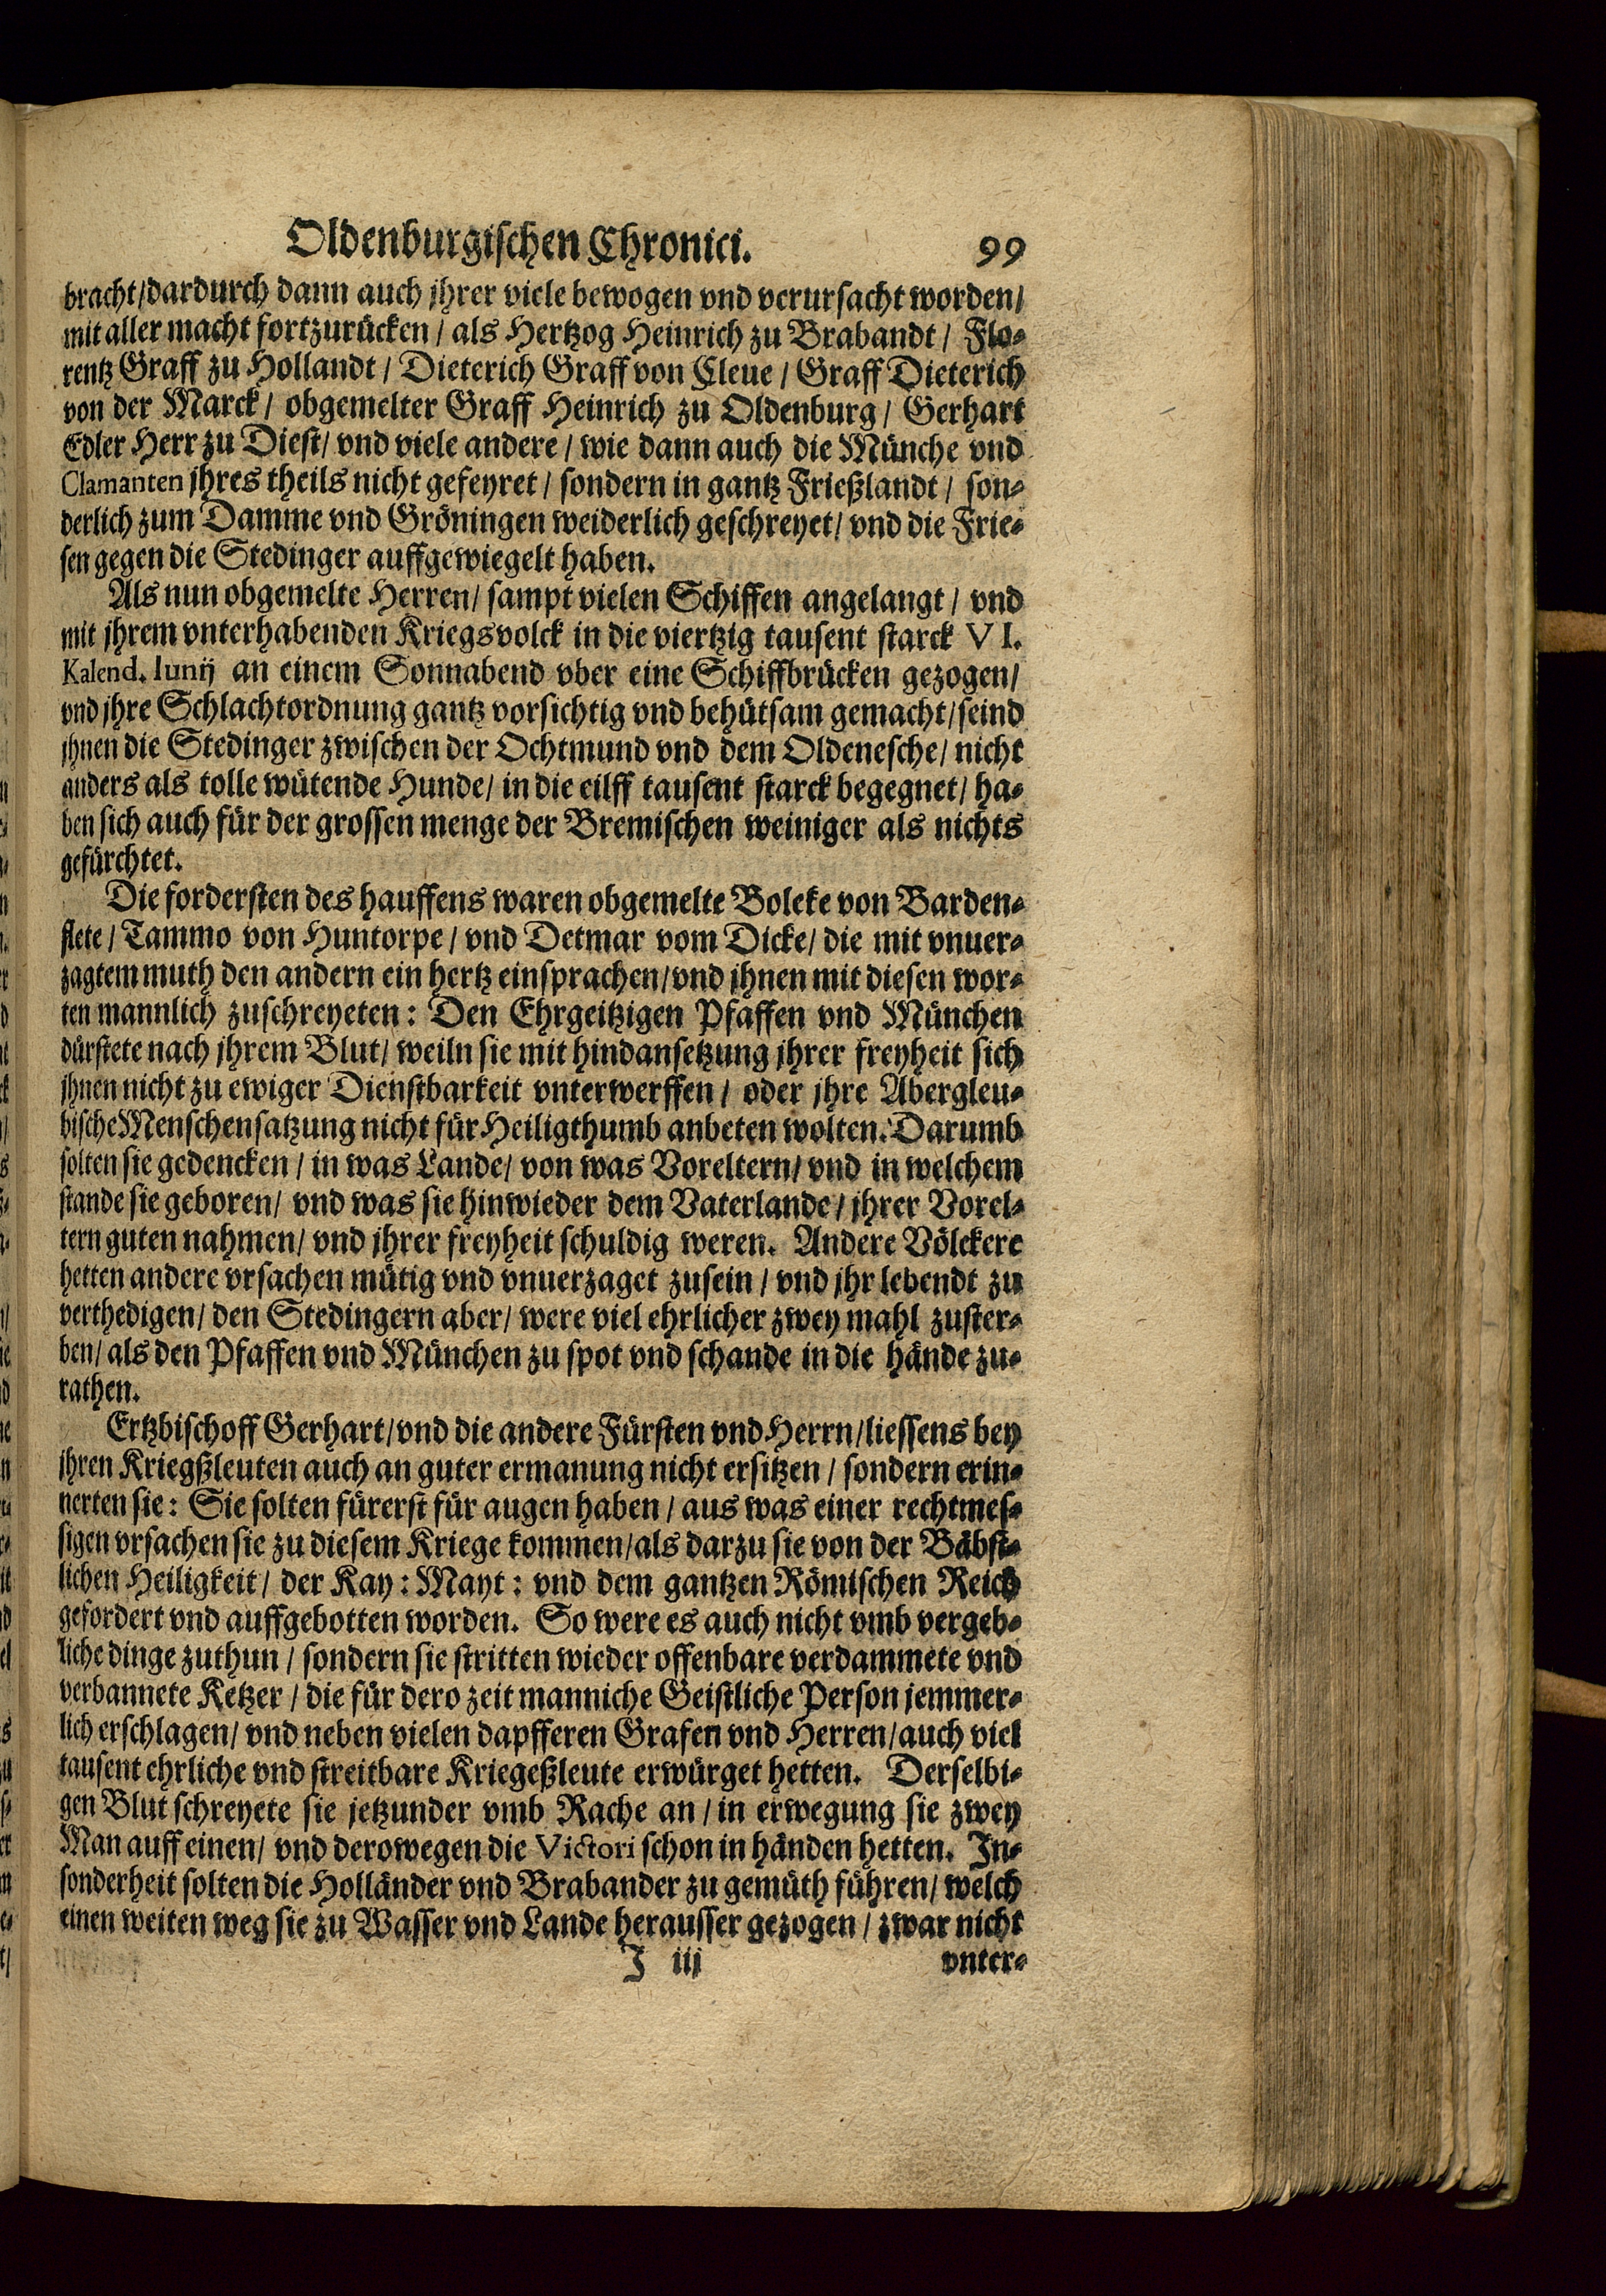 Oldenburgischen Chronici. 99
bracht/dardurch dann auch jhrer viele bewogen vnd verursacht worden/
mit aller macht fortzurücken / als Hertzog Heinrich zu Brabandt / Flo-
rentz Graff zu Hollandt / Dieterich Graff von Cleue / Graff Dieterich
von der Marck / obgemelter Graff Heinrich zu Oldenburg / Gerhart
Edler Herr zu Diest / vnd viele andere / wie dann auch die Münche vnd
Clamanten jhres theils nicht gefeyret / sondern in gantz Frießlandt / son-
derlich zum Damme vnd Gröningen weiderlich geschreyet / vnd die Frie-
sen gegen die Stedinger auffgewiegelt haben.
Als nun obgemelte Herren / sampt vielen Schiffen angelangt / vnd
mit jhrem vnterhabenden Kriegsvolck in die viertzig tausent starck VI.
Kalend. Iunij an einem Sonnabend vber eine Schiffbrücken gezogen /
vnd jhre Schlachtordnung gantz vorsichtig vnd behütsam gemacht / seind
jhnen die Stedinger zwischen der Ochtmund vnd dem Oldenesche / nicht
anders als tolle wütende Hunde / in die eilff tausent starck begegnet / ha-
ben sich auch für der grossen menge der Bremischen weiniger als nichts
gefürchtet.
Die fordersten des hauffens waren obgemelte Boleke von Barden-
flete / Tammo von Huntorpe / vnd Detmar vom Dicke / die mit vnuer-
zagtem muth den andern ein hertz einsprachen / vnd jhnen mit diesen wor-
ten mannlich zuschreyeten: Den Ehrgeitzigen Pfaffen vnd München
dürstete nach jhrem Blut / weiln sie mit hindansetzung jhrer freyheit sich
jhnen nicht zu ewiger Dienstbarkeit vnterwerffen / oder jhre Abergleu-
bische Menschensatzung nicht für Heiligthumb anbeten wolten. Darumb
solten sie gedencken / in was Lande / von was Voreltern / vnd in welchem
stande sie geboren / vnd was sie hinwieder dem Vaterlande / jhrer Vorel-
tern guten nahmen / vnd jhrer freyheit schuldig weren. Andere Völckere
hetten andere vrsachen mütig vnd vnuerzaget zusein / vnd jhr lebendt zu
verthedigen / den Stedingern aber / were viel ehrlicher zwey mahl zuster-
ben / als den Pfaffen vnd München zu spot vnd schande in die hände zu-
rathen.
Ertzbischoff Gerhart / vnd die andere Fürsten vnd Herrn / liessens bey
jhren Kriegßleuten auch an guter ermanung nicht ersitzen / sondern erin-
nerten sie: Sie solten fürerst für augen haben / aus was einer rechtmes-
sigen vrsachen sie zu diesem Kriege kommen / als darzu sie von der Bäbst-
lichen Heiligkeit / der Kay: Mayt: vnd dem gantzen Römischen Reich
gefordert vnd auffgebotten worden. So were es auch nicht vmb vergeb-
liche dinge zuthun / sondern sie stritten wieder offenbare verdammete vnd
verbannete Ketzer / die für dero zeit manniche Geistliche Person jemmer-
lich erschlagen / vnd neben vielen dapfferen Grafen vnd Herren / auch viel
tausent ehrliche vnd streitbare Kriegeßleute erwürget hetten. Derselbi-
gen Blut schreyete sie jetzunder vmb Rache an / in erwegung sie zwey
Man auff einen / vnd derowegen die Victori schon in händen hetten. In-
sonderheit solten die Holländer vnd Brabander zu gemüth führen / welch
einen weiten weg sie zu Wasser vnd Lande herausser gezogen / zwar nicht
I iij vnter-